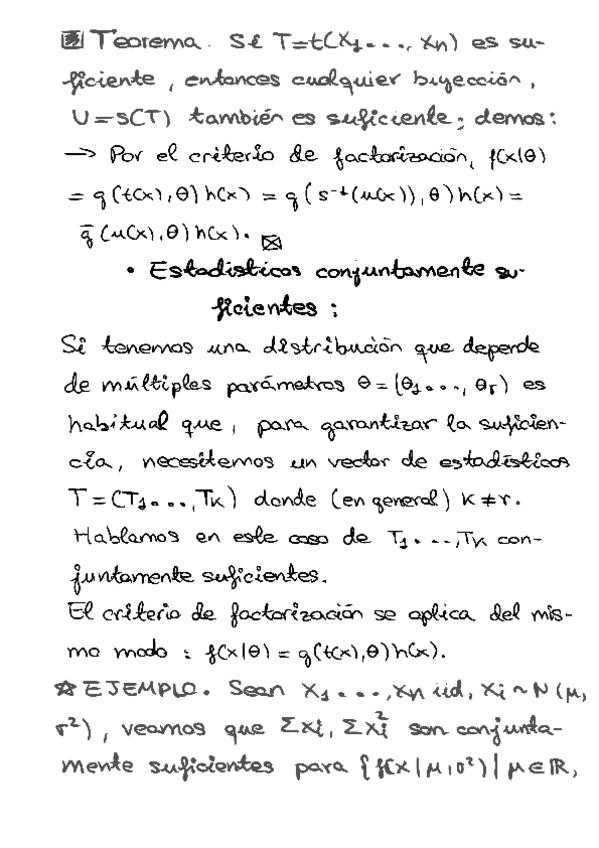 Teorema. Si T=t(X1..., Xn) es su-
ficiente, entonces cualquier biyección,
U=s(T) también es suficiente; demos:
→ Por el criterio de factorización, f(x|θ)
= g(t(x),θ)h(x) = g(s⁻¹(u(x)),θ)h(x) =
g̅(u(x),θ)h(x). ⊠
• Estadísticos conjuntamente su-
ficientes:
Si tenemos una distribución que depende
de múltiples parámetros θ=(θ1..., θr) es
habitual que, para garantizar la suficien-
cia, necesitemos un vector de estadísticos
T=(T1...,Tk) donde (en general) k≠r.
Hablamos en este caso de T1...,Tk con-
juntamente suficientes.
El criterio de factorización se aplica del mis-
mo modo: f(x|θ)=g(t(x),θ)h(x).
☆ EJEMPLO. Sean X1...,Xn iid, Xi~N(μ,
σ²), veamos que Σxi, Σxi² son conjunta-
mente suficientes para {f(x|μ,σ²)|μ∈ℝ,